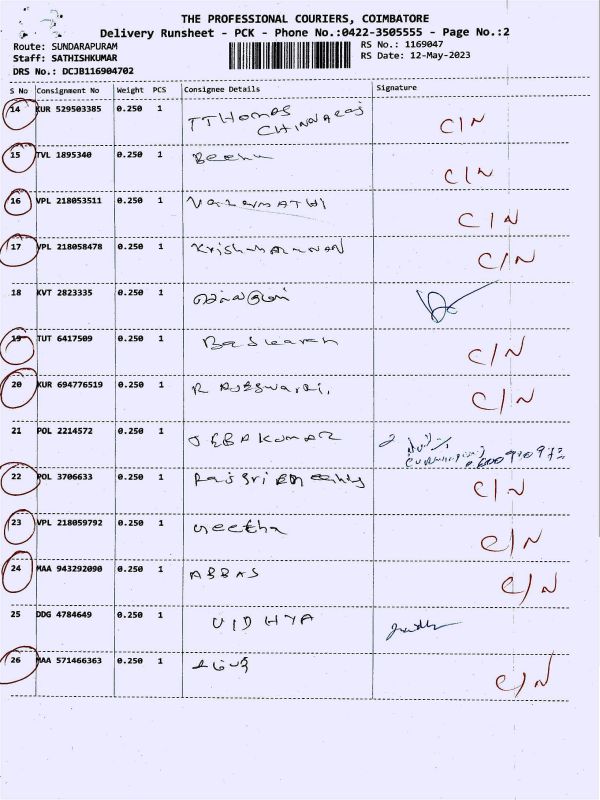 THE PROFESSIONAL COURIERS, COIMBATORE
Delivery Runsheet - PCK - Phone No.:0422-3505555 - Page No.:2
Route: SUNDARAPURAM RS No.: 1169047
Staff: SATHISHKUMAR RS Date: 12-May-2023
DRS No.: DCJB116904702
S No Consignment No Weight PCS Consignee Details Signature
14 KUR 529503385 0.250 1 TTHomas CHINNARAJ C/N
15 TVL 1895340 0.250 1 Beenu C/N
16 VPL 218053511 0.250 1 VALARMATHI C/N
17 VPL 218058478 0.250 1 C/N
18 KVT 2823335 0.250 1
19 TUT 6417509 0.250 1 Baskaran C/N
20 KUR 694776519 0.250 1 R RAJESWARI. C/N
21 POL 2214572 0.250 1 JEBAKUMAR
22 POL 3706633 0.250 1 Raj Sri C/N
23 VPL 218059792 0.250 1 Geetha C/N
24 MAA 943292090 0.250 1 ABBAS C/N
25 DDG 4784649 0.250 1 VIDHYA
26 MAA 571466363 0.250 1 C/N